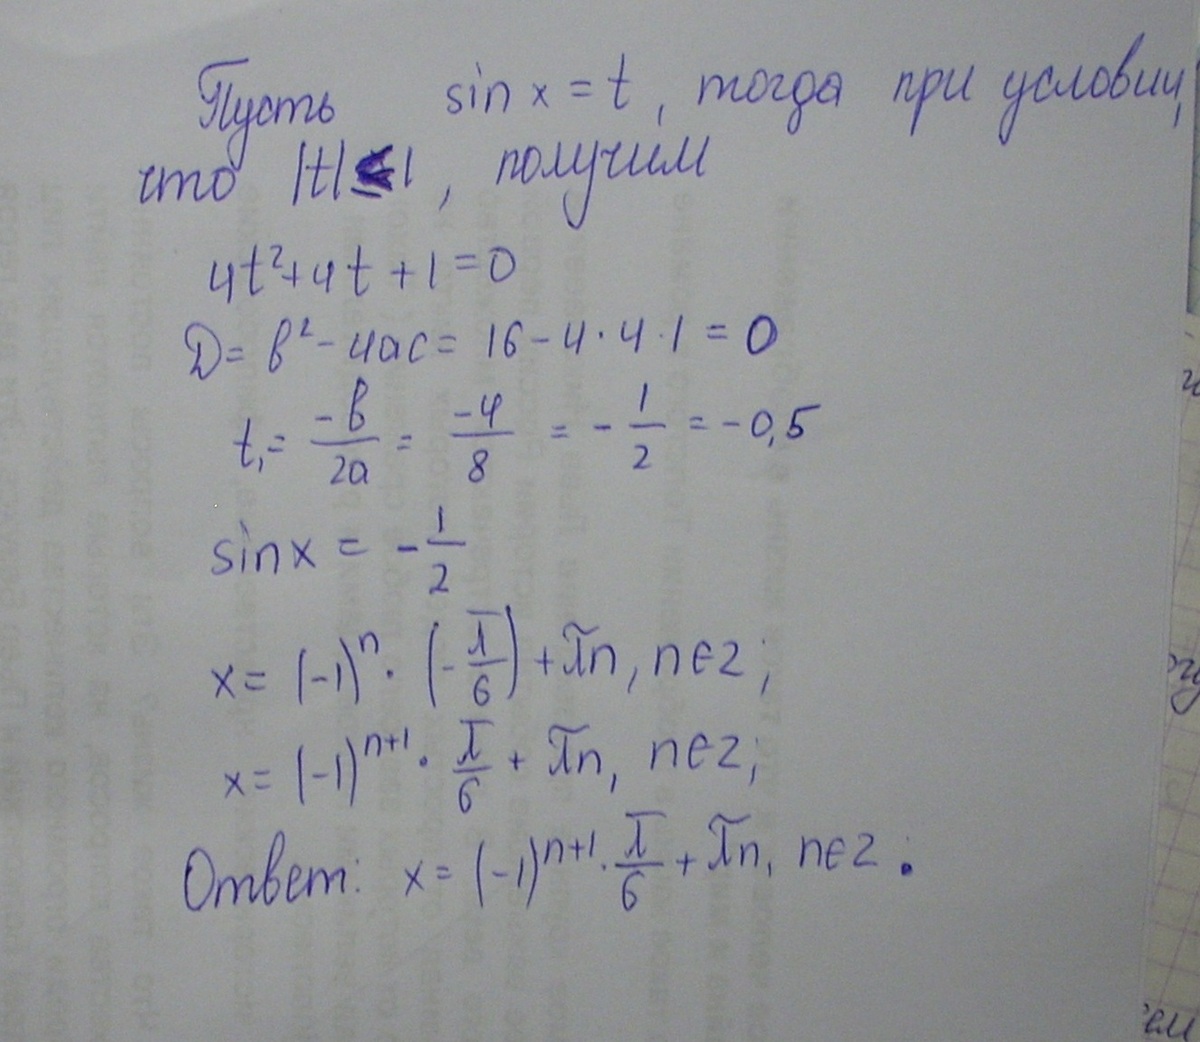 Пусть sin x = t, тогда при условии,
что |t| ≤ 1, получим
4t² + 4t + 1 = 0
D = b² - 4ac = 16 - 4 · 4 · 1 = 0
t₁ = -b/2a = -4/8 = -1/2 = -0,5
sin x = -1/2
x = (-1)ⁿ · (-π/6) + πn, n∈z;
x = (-1)ⁿ⁺¹ · π/6 + πn, n∈z;
Ответ: x = (-1)ⁿ⁺¹ · π/6 + πn, n∈z.